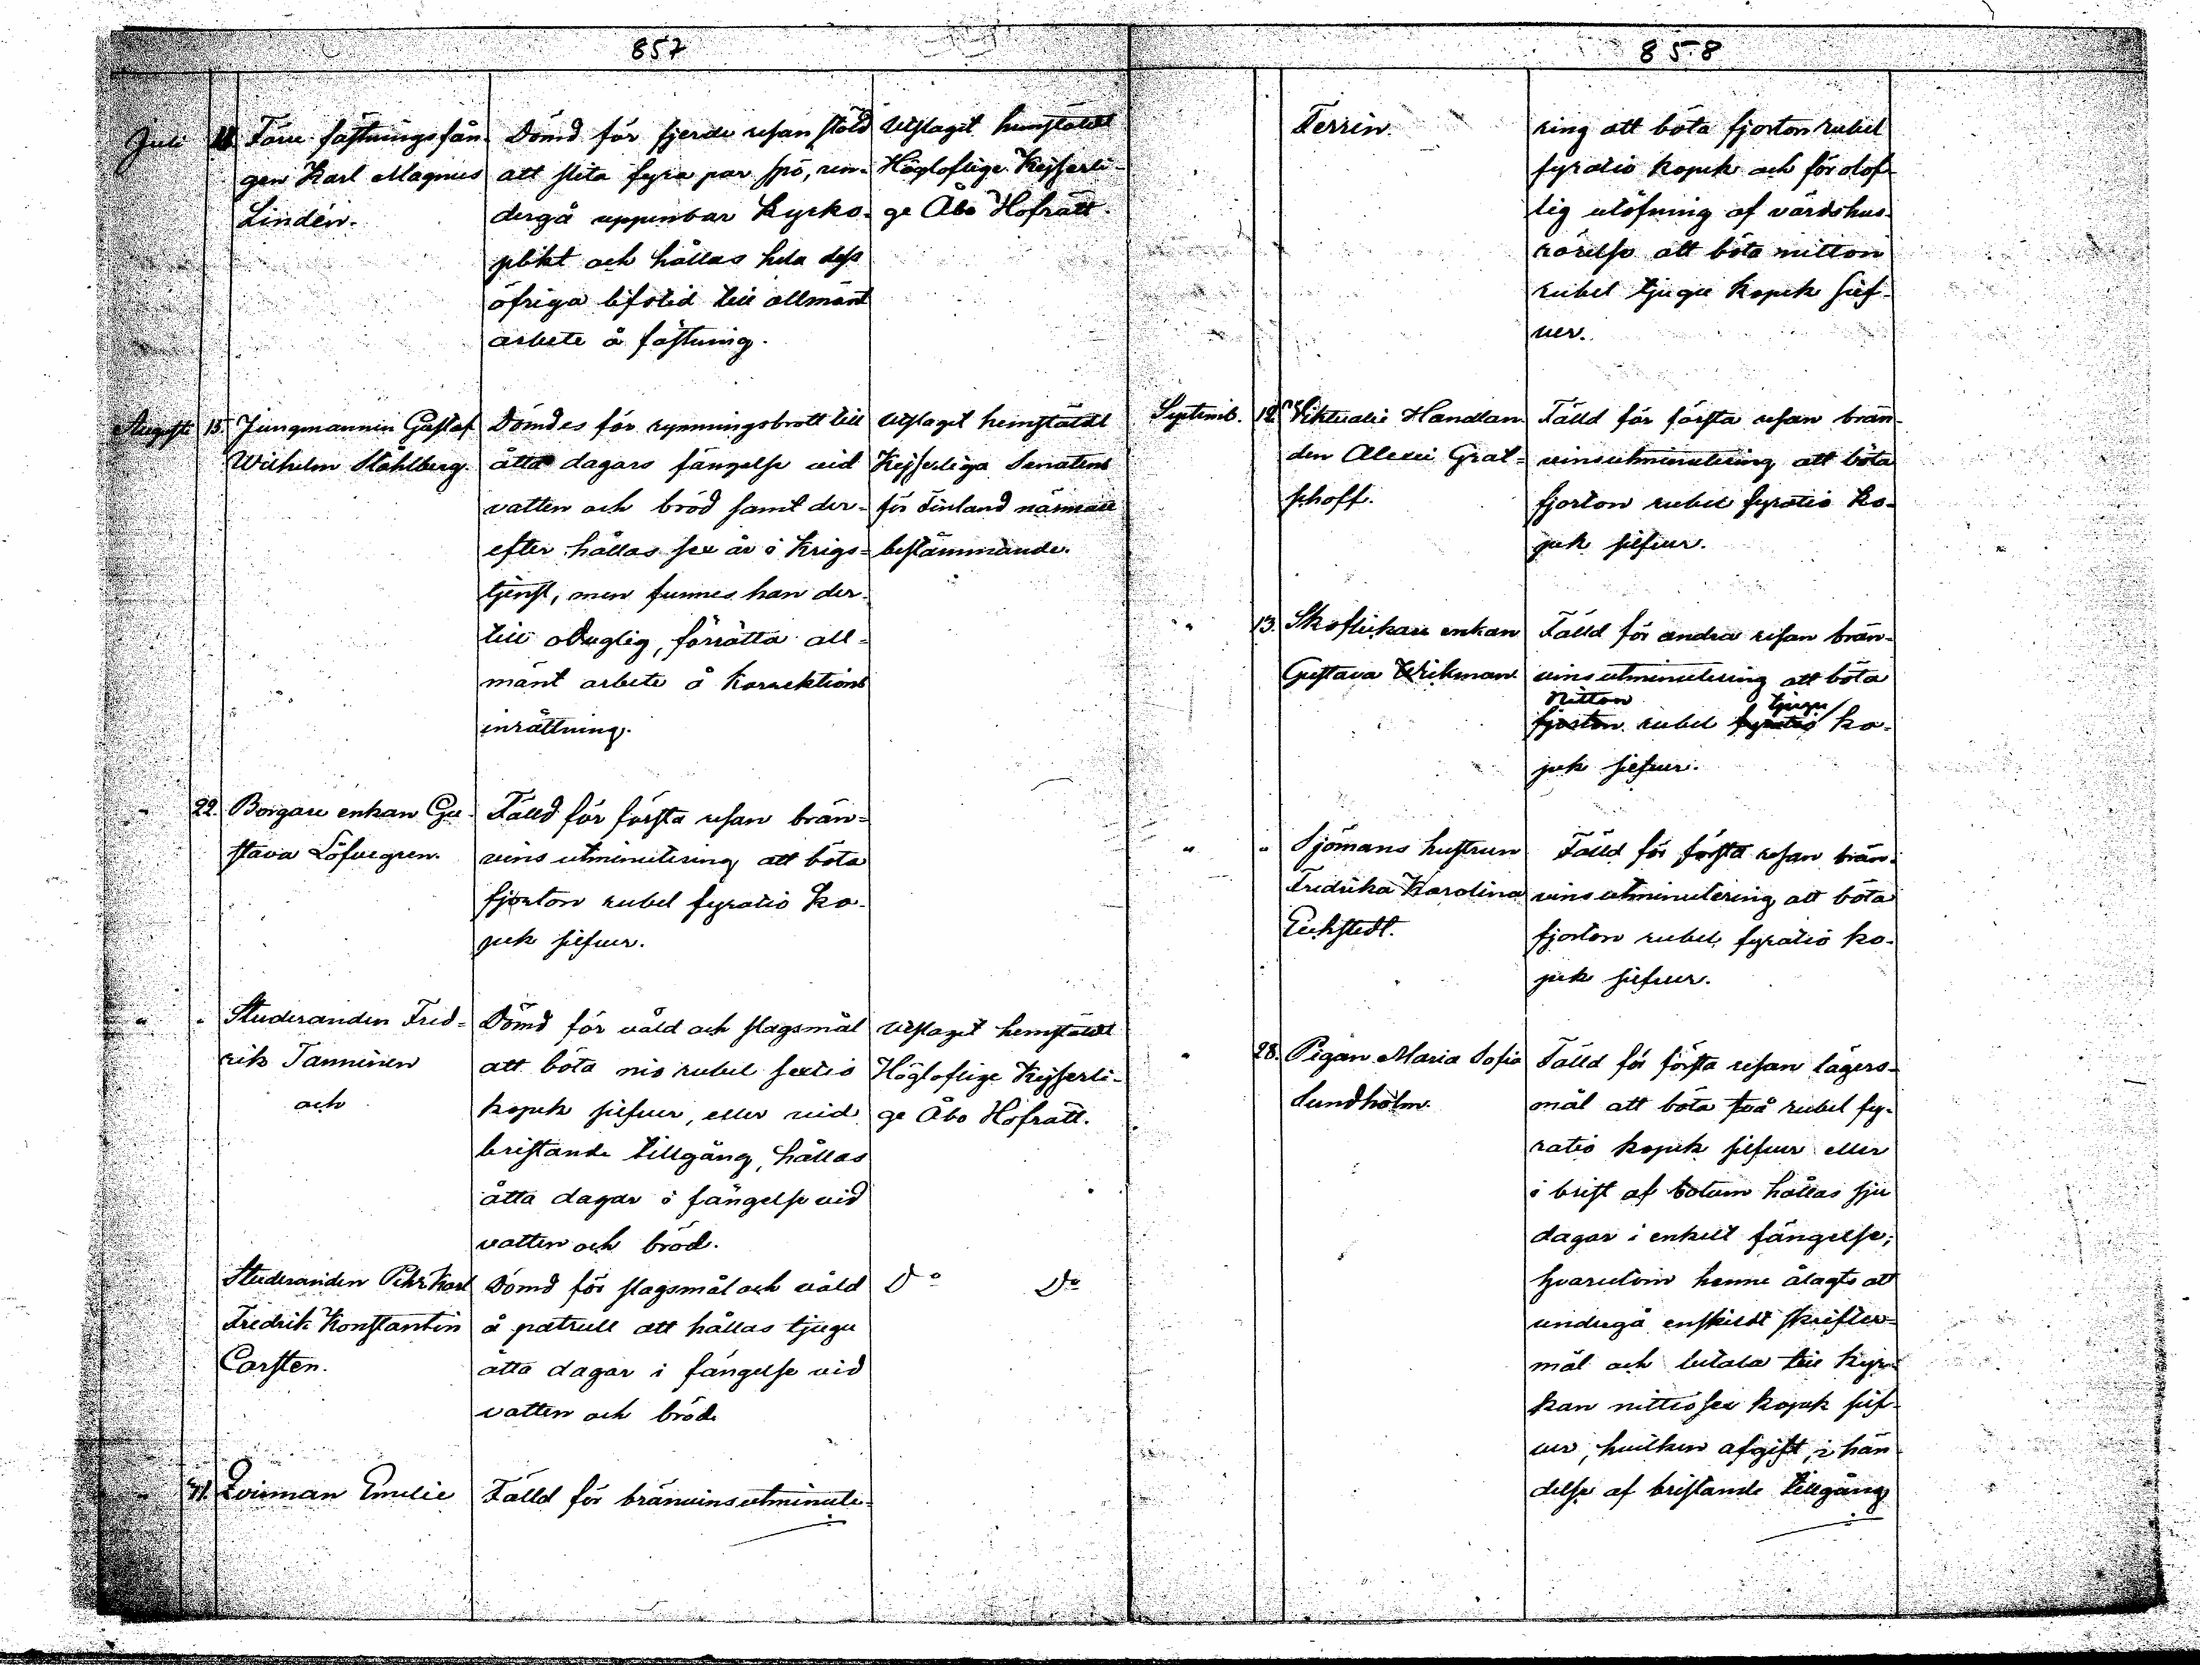 857
Juli
Förre fästningsfån-
gen Karl Magnus
Lindén.
Dömd för fjerde resan stöld
att slita fyra par spö, un-
dergå uppenbar kyrko-
plikt och hållas hela dess
öfriga lifstid till allmänt
arbete å fästning.
Utslaget hemstäldt
Högloflige Kejserli-
ge Åbo Hofrätt.
Augusti 15.
Jungmannen Gustaf
Wilhelm Ståhlberg.
Dömdes för rymningsbrott till
åtta dagars fängelse vid
vatten och bröd samt der-
efter hållas sex år i Krigs-
tjenst, men funnes han der-
till oduglig, förrätta all-
mänt arbete å Korrektions
inrättning.
Utslaget hemstäldt
Kejserliga Senatens
för Finland närmare
bestämmande.
" 22.
Borgare enkan Gu-
stava Löfvegren.
Fälld för första resan brän-
vins utminutering att böta
fjorton rubel fyratio ko-
pek silfver.
" "
Studeranden Fred-
rik Tanninen
och
Dömd för våld och slagsmål
att böta nio rubel sextio
kopek silfver, eller vid
bristande tillgång, hållas
åtta dagar i fängelse vid
vatten och bröd.
Utslaget hemstäldt
Högloflige Kejserli-
ge Åbo Hofrätt.
Studeranden Pehr Karl
Fredrik Konstantin
Carsten.
Dömd för slagsmål och våld
å patrull att hållas tjugu
åtta dagar i fängelse vid
vatten och bröd.
Do Do
" 31.
Emelie
Fälld för bränvinsutminute-
858
Ferrin.
ring att böta fjorton rubel
fyratio kopek och för olof-
lig utöfning af värdshus-
rörelse att böta nitton
rubel tjugu kopek silf-
ver.
Septemb. 12.
Viktualie Handlan-
den Alexei Grat-
schoff.
Fälld för första resan brän-
vinsutminutering att böta
fjorton rubel fyratio ko-
pek silfver.
" 13.
Skoflickare enkan
Gustava Wickman
Fälld för andra resan brän-
vins utminutering att böta
nitton tjugu
fjorton rubel fyratio ko-
pek silfver.
" "
Sjömans hustrun
Fredrika Karolina
Eckstedt.
Fälld för första resan brän-
vins utminutering att böta
fjorton rubel fyratio ko-
pek silfver.
" 28.
Pigan Maria Sofia
Lundholm.
Fälld för första resan lägers-
mål att böta två rubel fy-
ratio kopek silfver eller
i brist af botum hållas sju
dagar i enkelt fängelse;
hvarutom henne ålagts att
undergå enskildt skrifter-
mål och betala till kyr-
kan nittiosex kopek silf-
ver, hvilken afgift, i hän
delse af bristande tillgång